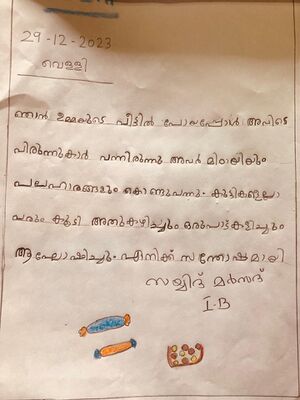 29-12-2023
വെള്ളി
ഞാൻ ഉമ്മയുടെ വീട്ടിൽ പോയപ്പോൾ അവിടെ
വിരുന്നുകാർ വന്നിരുന്നു അവർ മിഠായിയും
പലഹാരങ്ങളും കൊണ്ടുവന്നു. കുട്ടികളെല്ലാ
വരും കൂടി അതുകഴിച്ചും ഒരുപാട്കളിച്ചും
ആഘോഷിച്ചും എനിക്ക് സന്തോഷമായി
സയ്യിദ് മർസദ്
I-B